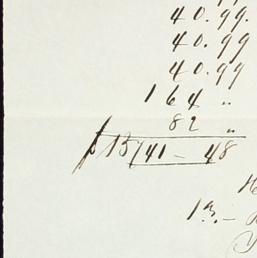 40.99.
40.99
40.99
164 "
82 "
$13741 - 48
1